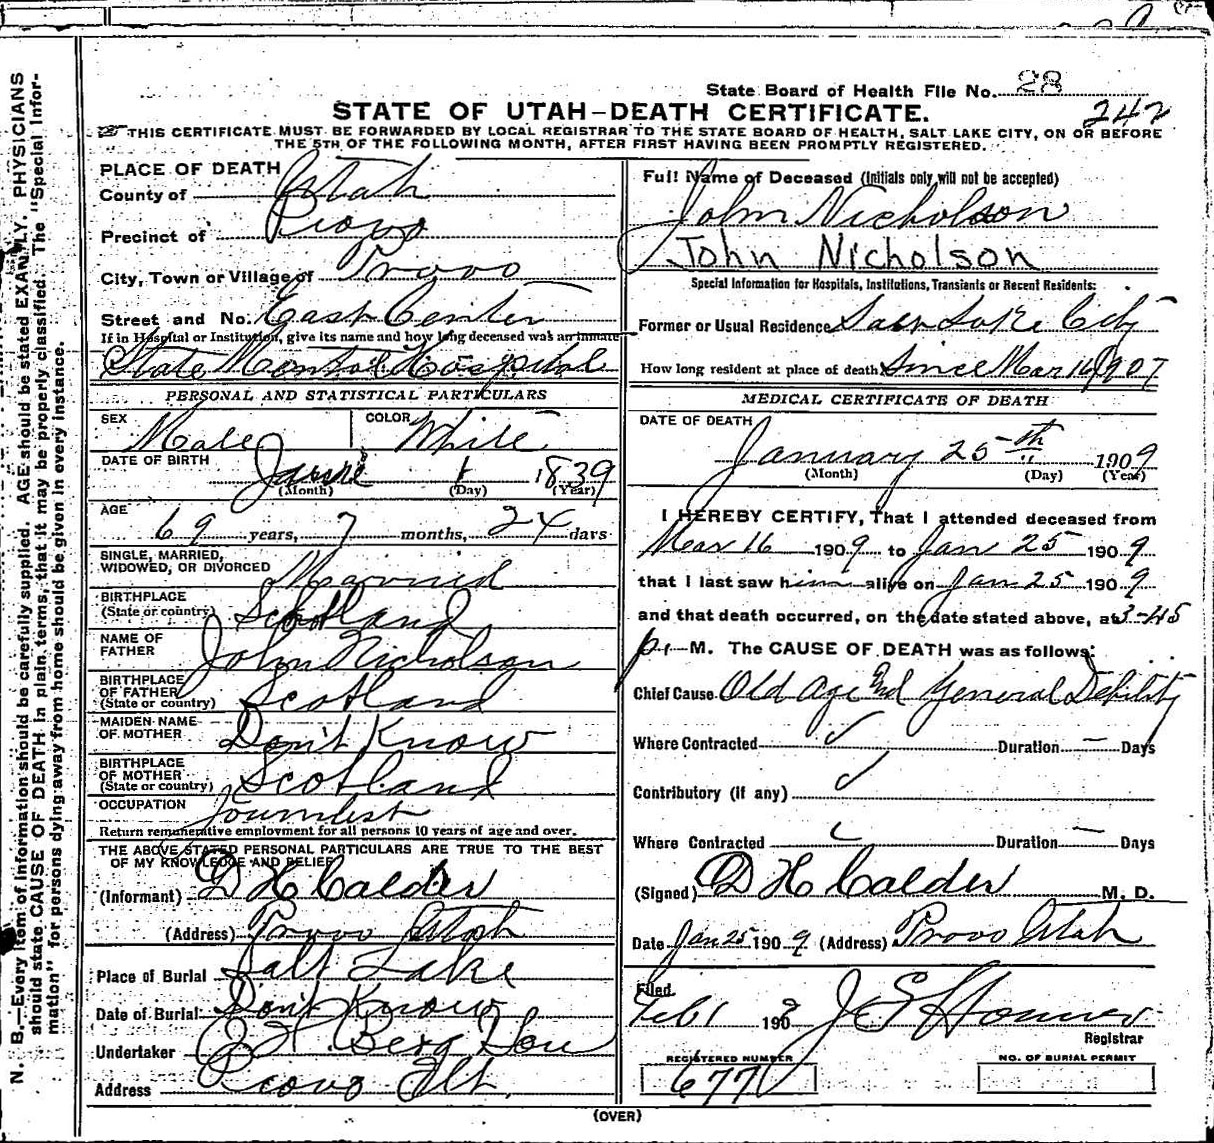 State Board of Health File No. 28
242
STATE OF UTAH-DEATH CERTIFICATE.
THIS CERTIFICATE MUST BE FORWARDED BY LOCAL REGISTRAR TO THE STATE BOARD OF HEALTH, SALT LAKE CITY, ON OR BEFORE
THE 5TH OF THE FOLLOWING MONTH, AFTER FIRST HAVING BEEN PROMPTLY REGISTERED.
N. B.—Every item of information should be carefully supplied. AGE should be stated EXACTLY. PHYSICIANS
should state CAUSE OF DEATH in plain terms, that it may be properly classified. The "Special Infor-
mation" for persons dying away from home should be given in every instance.
PLACE OF DEATH
County of Utah
Precinct of Provo
City, Town or Village of Provo
Street and No. East Center
If in Hospital or Institution, give its name and how long deceased was an inmate
State Mental Hospital
PERSONAL AND STATISTICAL PARTICULARS
SEX Male COLOR White
DATE OF BIRTH June 1 1839
(Month) (Day) (Year)
AGE
69 years, 7 months, 24 days
SINGLE, MARRIED,
WIDOWED, OR DIVORCED Married
BIRTHPLACE
(State or country) Scotland
NAME OF
FATHER John Nicholson
BIRTHPLACE
OF FATHER
(State or country) Scotland
MAIDEN NAME
OF MOTHER Don't Know
BIRTHPLACE
OF MOTHER
(State or country) Scotland
OCCUPATION Journalist
Return remunerative employment for all persons 10 years of age and over.
THE ABOVE STATED PERSONAL PARTICULARS ARE TRUE TO THE BEST
OF MY KNOWLEDGE AND BELIEF
(Informant) D H Calder
(Address) Provo Utah
Place of Burial Salt Lake
Date of Burial Don't Know
Undertaker Berg Son
Address Provo Ut.
Full Name of Deceased (Initials only will not be accepted)
John Nicholson
John Nicholson
Special Information for Hospitals, Institutions, Transients or Recent Residents:
Former or Usual Residence Salt Lake City
How long resident at place of death Since Mar 16 1907
MEDICAL CERTIFICATE OF DEATH
DATE OF DEATH
January 25th 1909
(Month) (Day) (Year)
I HEREBY CERTIFY, That I attended deceased from
Mar 16 1909 to Jan 25 1909
that I last saw him alive on Jan 25 1909
and that death occurred, on the date stated above, at 3-45
p. M. The CAUSE OF DEATH was as follows:
Chief Cause Old age and General Debility
Where Contracted ✓ Duration — Days
Contributory (if any) ✓
Where Contracted ✓ Duration — Days
(Signed) D H Calder M. D.
Date Jan 25 1909 (Address) Provo Utah
Filed
Feb 1 1909 J E
Registrar
REGISTERED NUMBER
677
NO. OF BURIAL PERMIT
(OVER)